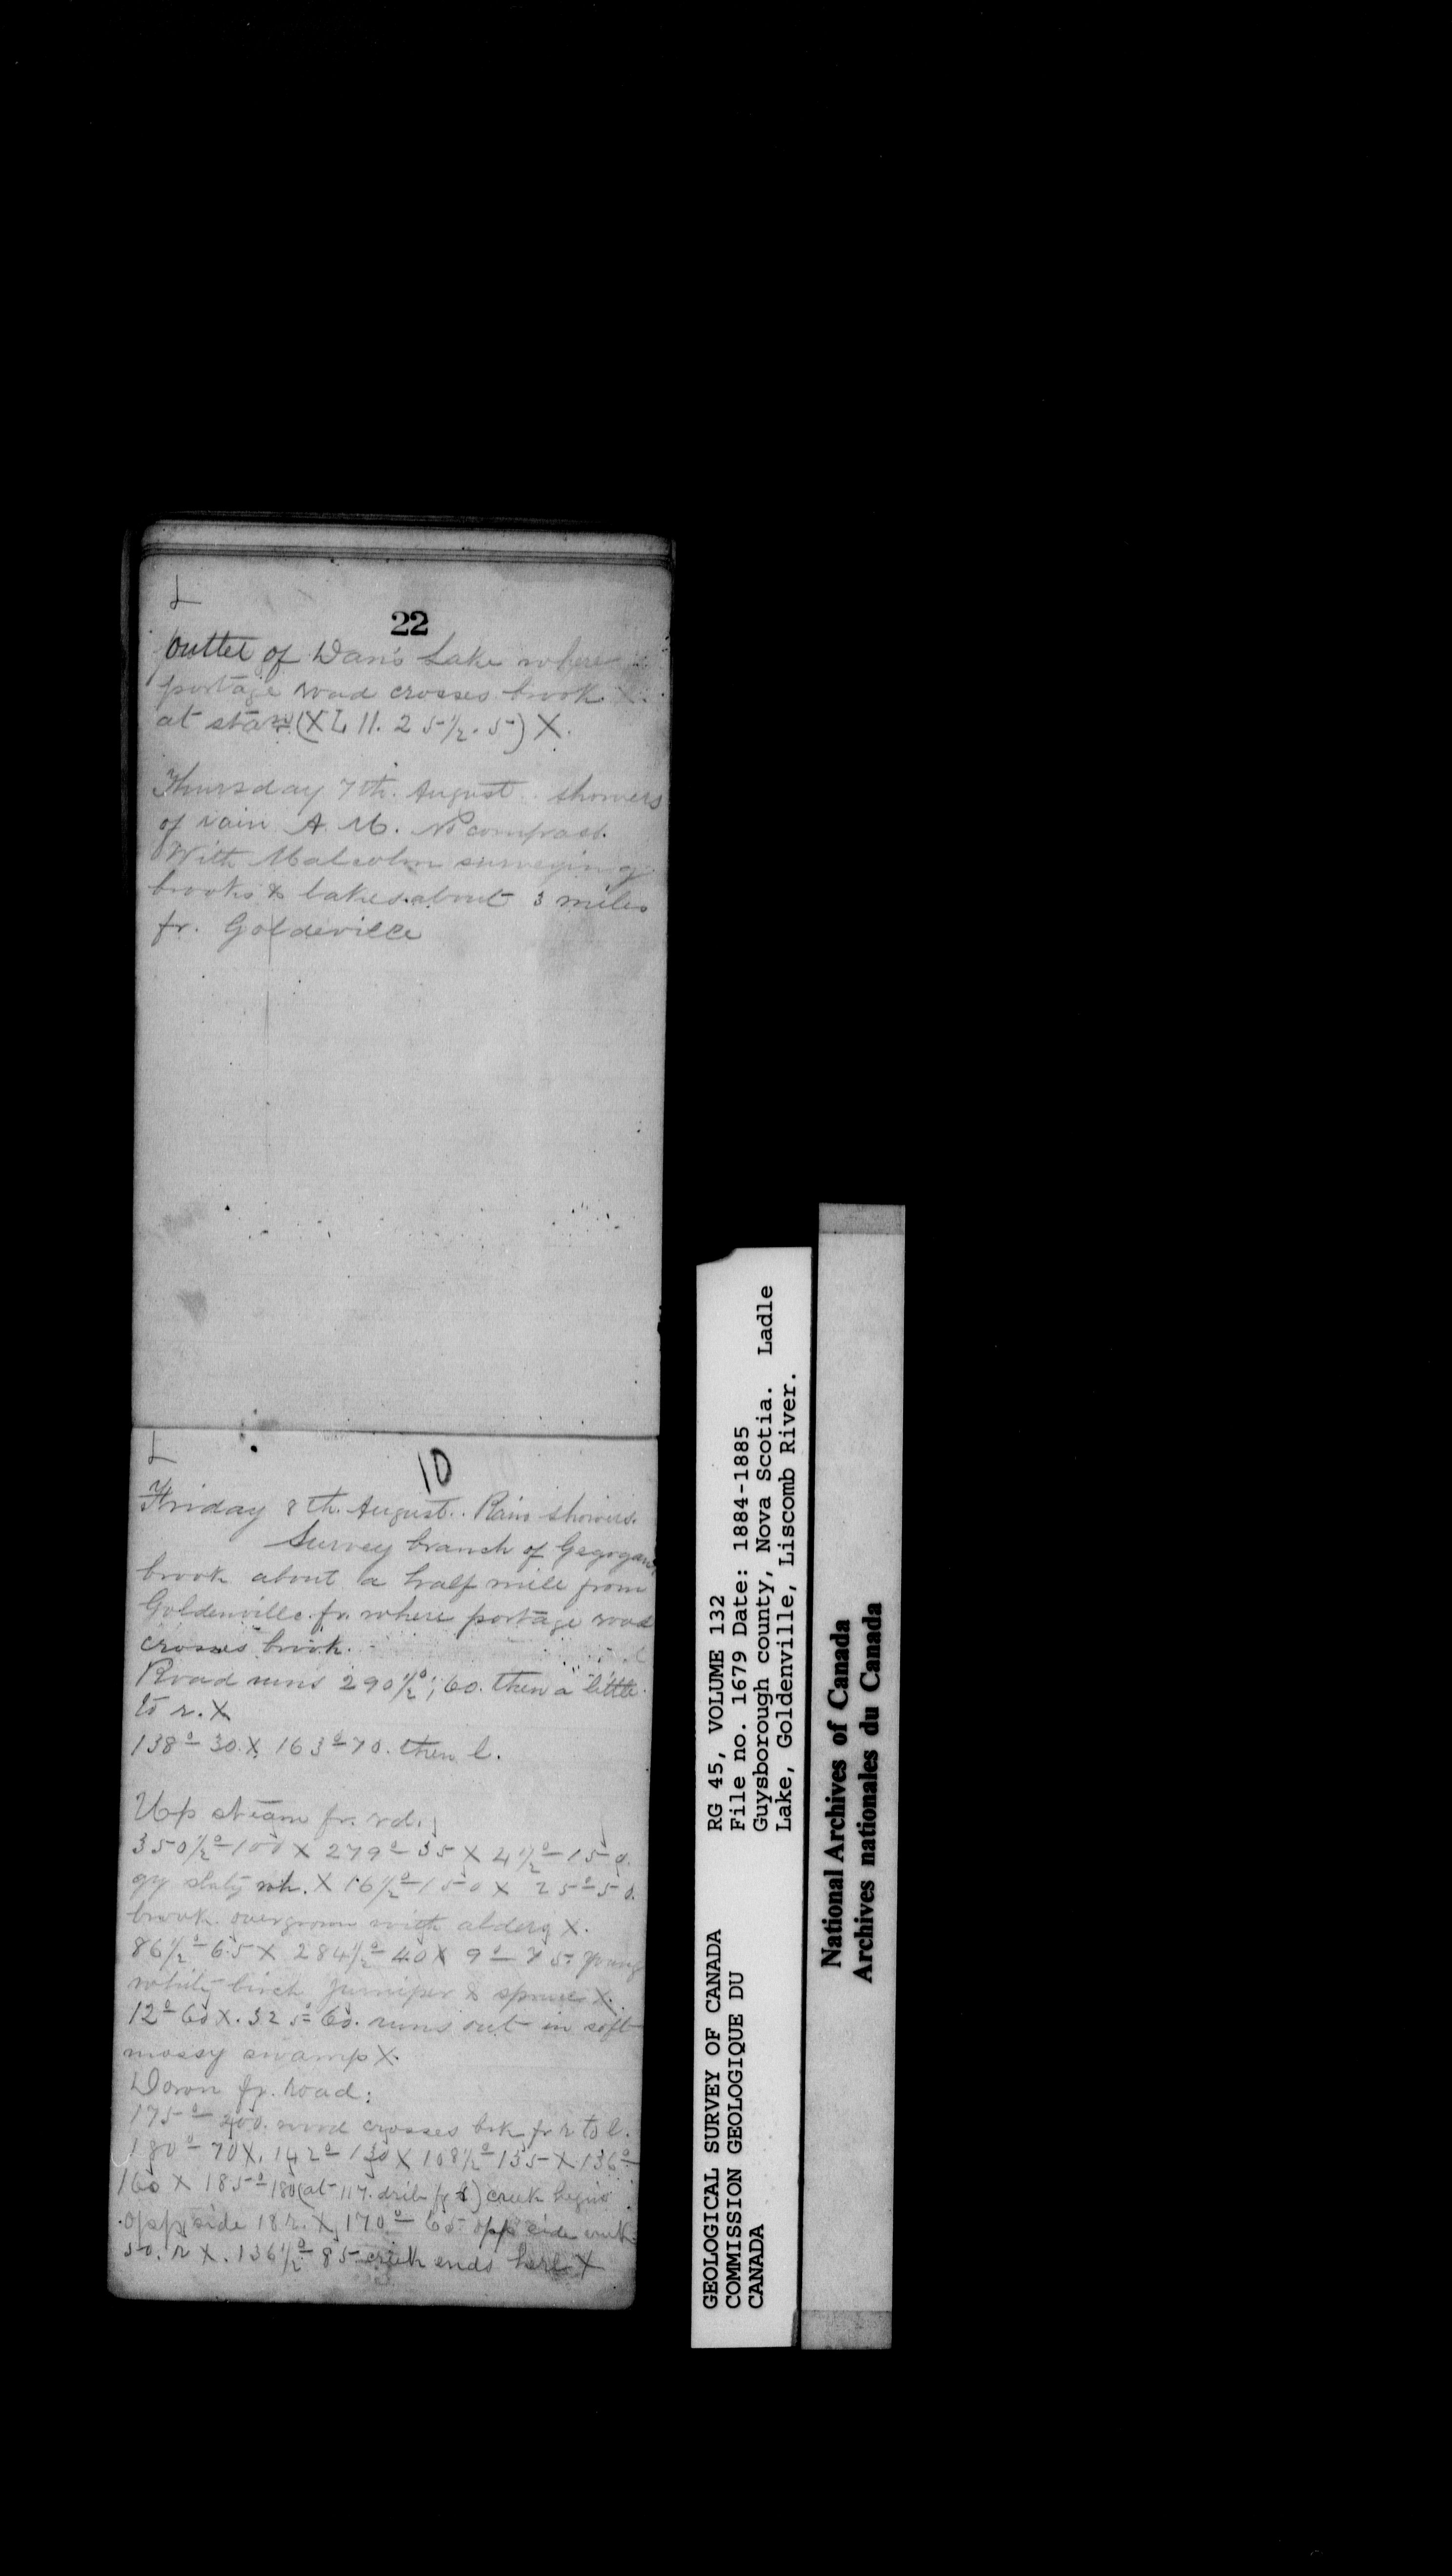 L
22
outlet of Dan's Lake where
portage road crosses brook X.
at (XL 11. 25½. 5) X.
Thursday 7th. August. showers
of rain A. M. No compass.
With Malcolm surveying
brooks & lakes about 3 miles
fr. Goldeville
L
10
Friday 8th. August. Rain showers.
Survey branch of
brook about a half mile from
Goldenville fr. where portage road
crosses brook.
Road runs 290½°; 60. then a little
to r. X
138° 30. X 163° 70. then l.
Up stream fr. rd.;
350½° 100 X 279° 35 X 4½° 150.
gy slaty wh. X 16½° 150 X 25° 50.
brook overgrown with alders X.
86½° 65 X 284½° 40 X 9° 75. young
white birch juniper & spruce X.
12° 60 X. 325° 60. runs out in soft
mossy swamp X.
Down fr. road:
175° 200. road crosses bk fr r to l.
180° 70 X. 142° 130 X 108½° 135 X 136°
160 X 185° 180 (at 117. fr ) creek begins
opp side 18 r. X 170° 60 opp side
50. r X. 136½° 85 creek ends here X
GEOLOGICAL SURVEY OF CANADA
COMMISSION GEOLOGIQUE DU
CANADA
RG 45, VOLUME 132
File no. 1679 Date: 1884-1885
Guysborough county, Nova Scotia. Ladle
Lake, Goldenville, Liscomb River.
National Archives of Canada
Archives nationales du Canada